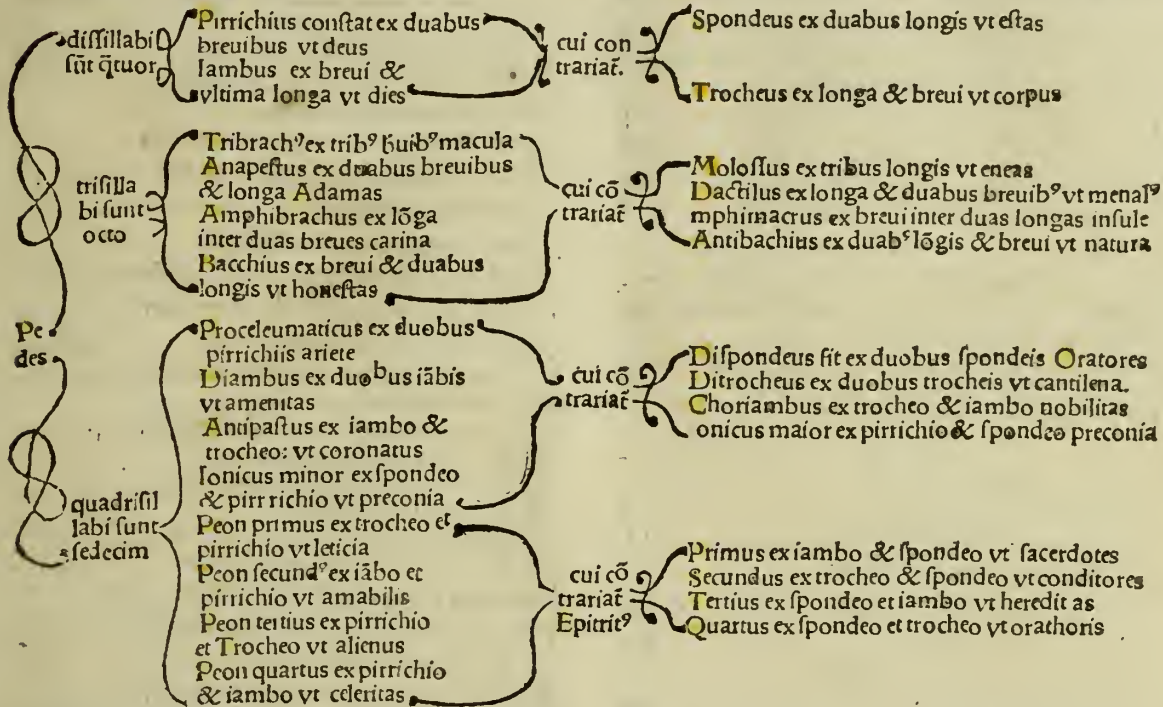 Pedes
diſſillabi
ſūt q̄tuor
Pirrichius conſtat ex duabus
breuibus vt deus
Iambus ex breui &
vltima longa vt dies
cui con
trariat̄.
Spondeus ex duabus longis vt eſtas
Trocheus ex longa & breui vt corpus
triſilla
bi ſunt
octo
Tribrachꝰ ex tribꝰ b̄uibꝰ macula
Anapeſtus ex duabus breuibus
& longa Adamas
Amphibrachus ex lōga
inter duas breues carina
Bacchius ex breui & duabus
longis vt honeſtas
cui cō
trariat̄
Moloſſus ex tribus longis vt eneas
Dactilus ex longa & duabus breuibꝰ vt menalꝰ
mphimacrus ex breui inter duas longas inſule
Antibachius ex duabꝰ lōgis & breui vt natura
quadriſil
labi ſunt
ſedecim
Proceleumaticus ex duobus
pirrichiis ariete
Diambus ex duobus iābis
vt amenitas
Antipaſtus ex iambo &
trocheo: vt coronatus
Ionicus minor ex ſpondeo
& pirrrichio vt preconia
cui cō
trariat̄
Diſpondeus fit ex duobus ſpondeis Oratores
Ditrocheus ex duobus trocheis vt cantilena.
Choriambus ex trocheo & iambo nobilitas
onicus maior ex pirrichio & ſpondeo preconia
Peon primus ex trocheo et
pirrichio vt leticia
Peon ſecundꝰ ex iābo et
pirrichio vt amabilis
Peon tertius ex pirrichio
et Trocheo vt alienus
Peon quartus ex pirrichio
& iambo vt celeritas
cui cō
trariat̄
Epitritꝰ
Primus ex iambo & ſpondeo vt ſacerdotes
Secundus ex trocheo & ſpondeo vt conditores
Tertius ex ſpondeo et iambo vt heredit as
Quartus ex ſpondeo et trocheo vt orathoris